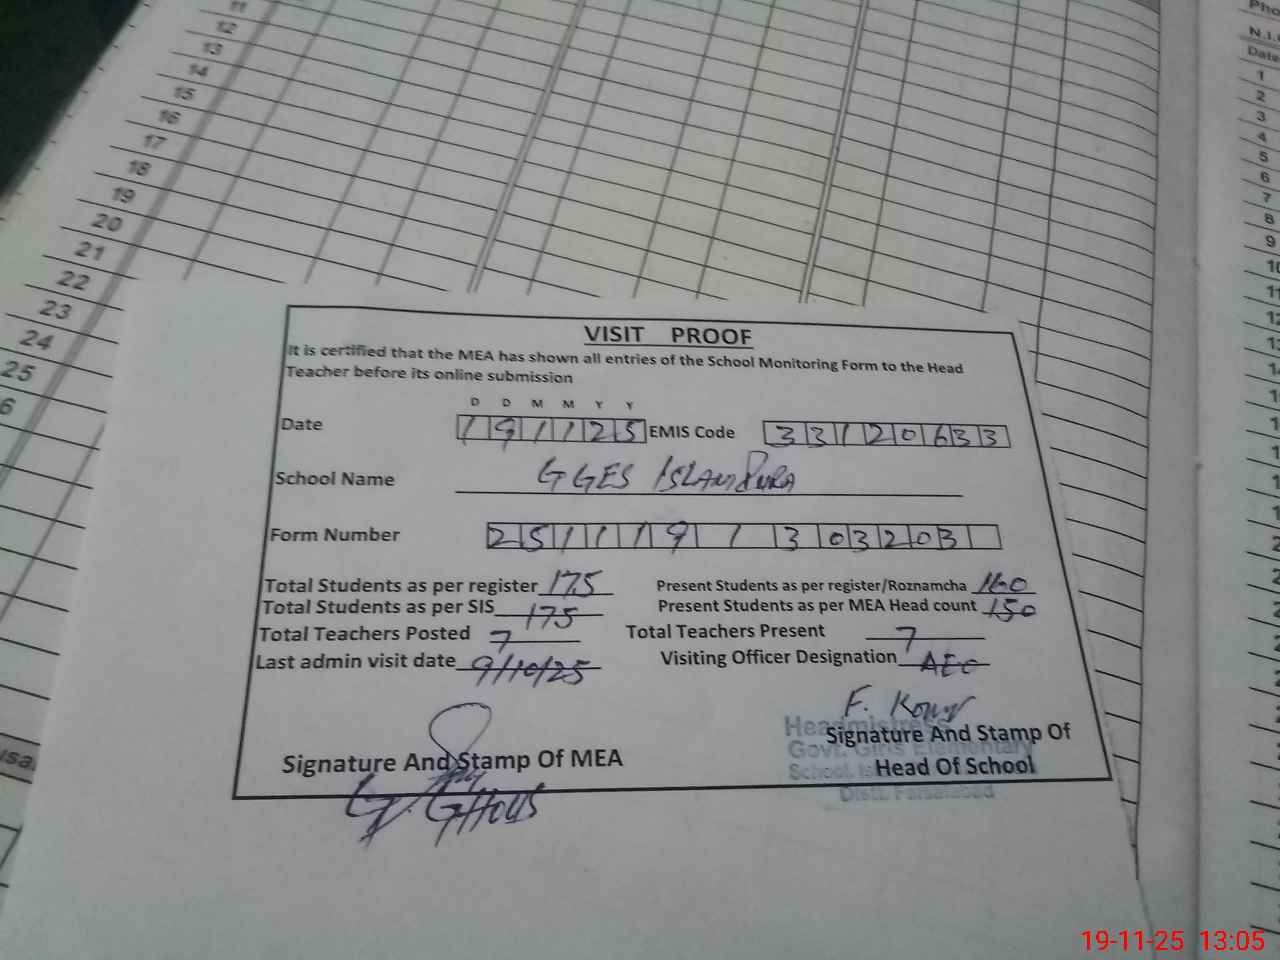 11
12
13
14
15
16
17
18
19
20
21
22
23
24
25
6
Pho
N.I.
Date
1
2
3
4
5
6
7
8
9
10
11
VISIT PROOF
It is certified that the MEA has shown all entries of the School Monitoring Form to the Head
Teacher before its online submission
D D M M Y Y
Date 191125 EMIS Code 33120633
School Name GGES ISLAMPURA
Form Number 251119 1 303203
Total Students as per register 175 Present Students as per register/Roznamcha 160
Total Students as per SIS 175 Present Students as per MEA Head count 150
Total Teachers Posted 7 Total Teachers Present 7
Last admin visit date 9/10/25 Visiting Officer Designation AEO
Headmistress
Signature And Stamp Of
Govt. Girls Elementary
Signature And Stamp Of MEA
School Head Of School
Distt. Faisalabad
19-11-25 13:05